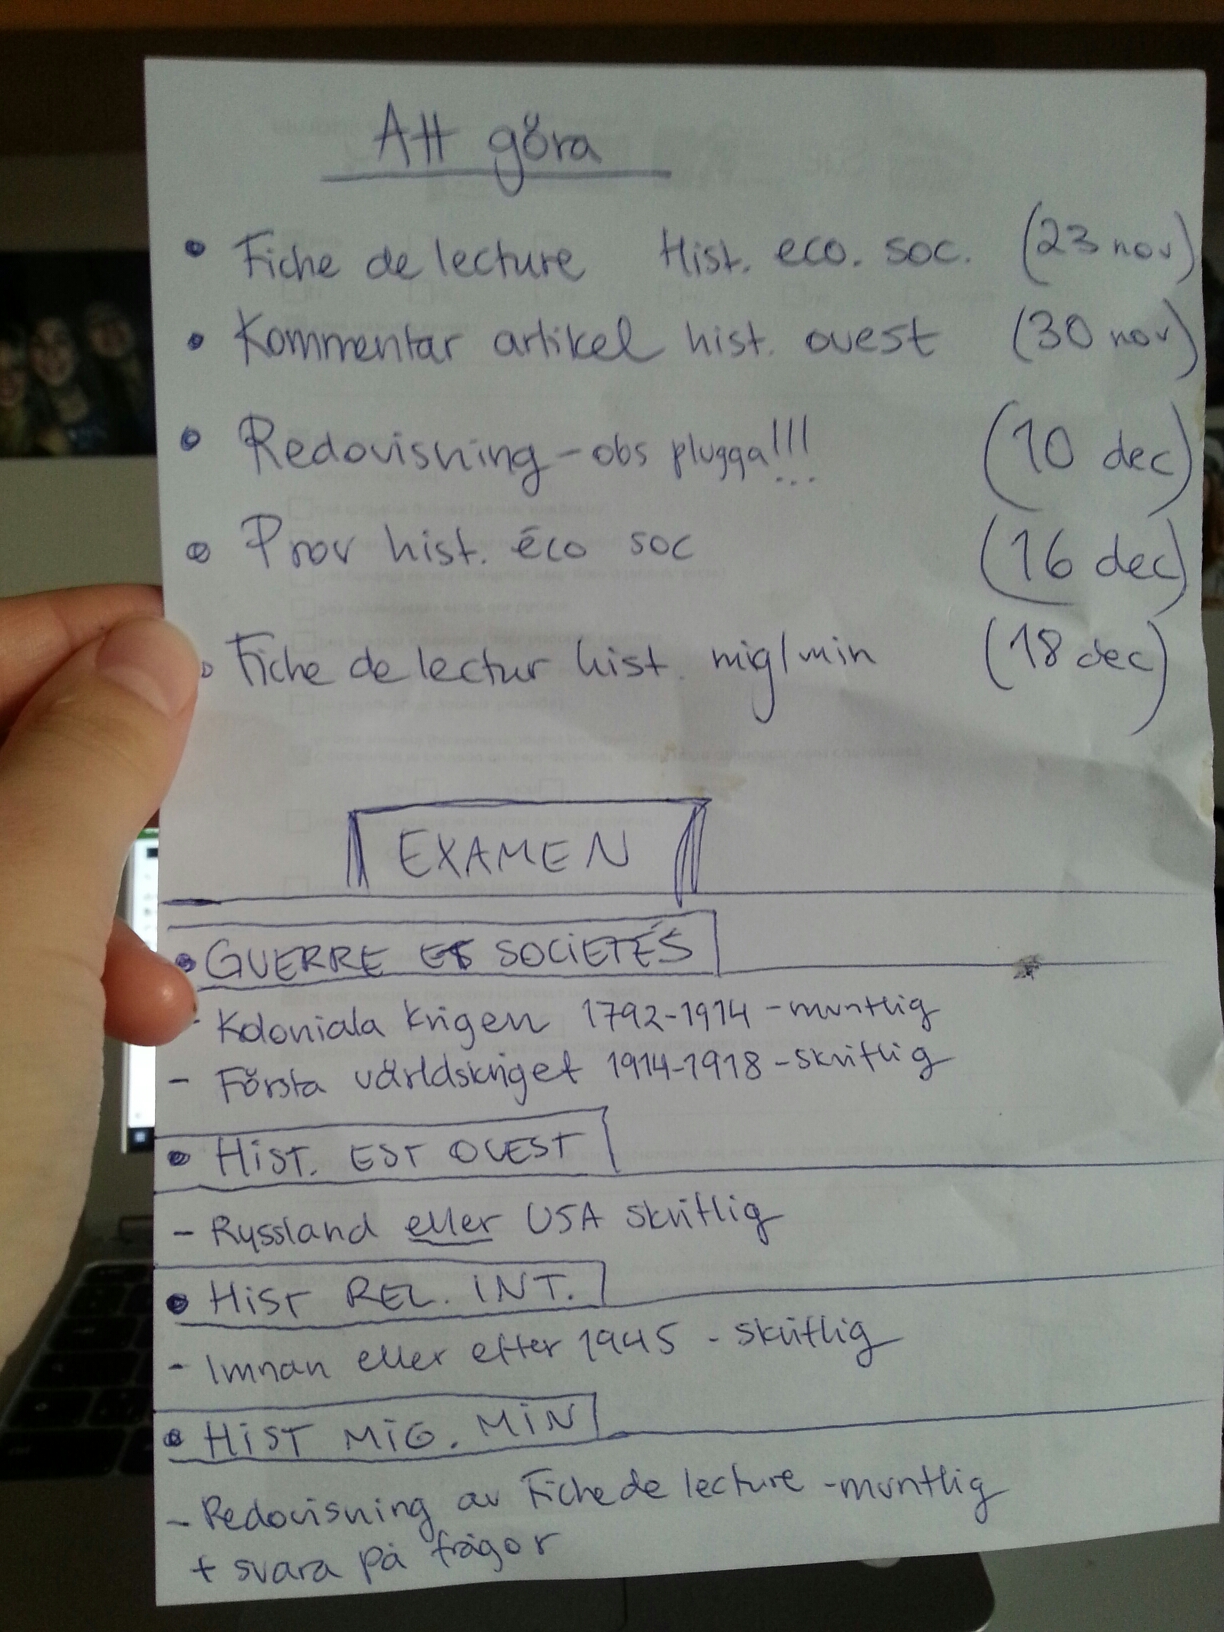 Att göra
• Fiche de lecture Hist. eco. soc. (23 nov)
• Kommentar artikel hist. ouest (30 nov)
• Redovisning - obs plugga!!! (10 dec)
• Prov hist. éco soc (16 dec)
• Fiche de lectur hist. mig/min (18 dec)
EXAMEN
• GUERRE ET SOCIETÉS
- Koloniala krigen 1792-1914 - muntlig
- Första världskriget 1914-1918 - skriftlig
• HIST. EST OUEST
- Ryssland eller USA skriftlig
• HIST REL. INT.
- Innan eller efter 1945 - skriftlig
• HIST MIG. MIN
- Redovisning av Fiche de lecture - muntlig
+ svara på frågor